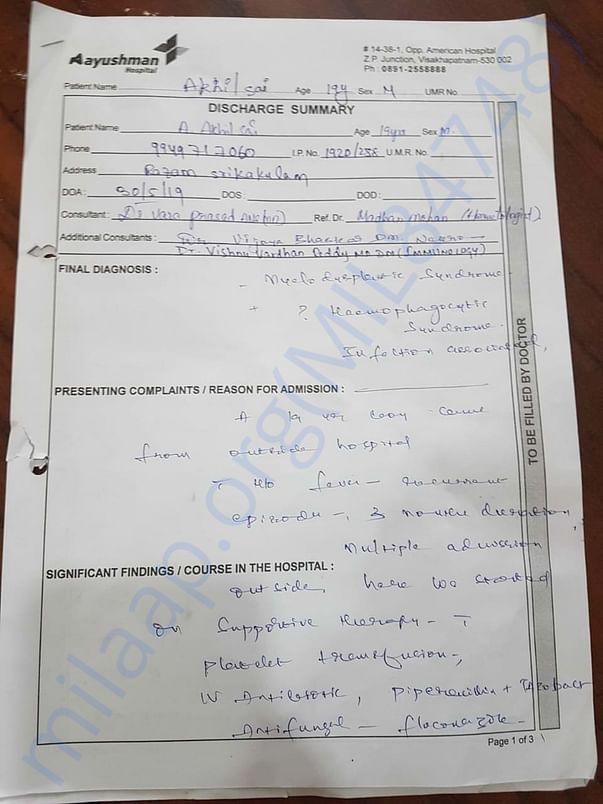 Aayushman
Hospital
# 14-38-1, Opp. American Hospital
Z.P. Junction, Visakhapatnam-530 002
Ph : 0891-2558888
Patient Name Akhil sai Age 19y Sex M UMR No
DISCHARGE SUMMARY
Patient Name A. Akhil sai Age 19yrs Sex M.
Phone 9949717060 I.P. No. 1920/258 U.M.R. No.
Address Razam srikakulam
DOA : 30/5/19 DOS : DOD :
Consultant : Dr vara prasad Ref. Dr. Madhan mohan
Additional Consultants : Dr. Vijaya Bhaskar Dm.
Dr. Vishnu Vardhan Reddy MD DM (IMMUNOLOGY)
FINAL DIAGNOSIS :
- Myelo dysplastic Syndrome
+ ? Haemophagocytic
Syndrome.
Infection associated,
PRESENTING COMPLAINTS / REASON FOR ADMISSION :
A 19 yr boy came
from outside hospital
H/o fever - recurrent
episode -, 3 months duration,
Multiple admission
SIGNIFICANT FINDINGS / COURSE IN THE HOSPITAL :
outside, here we started
on Supportive therapy -
platelet transfusion -,
IV Antibiotic, piperacillin +
Antifungal - floconazole -
TO BE FILLED BY DOCTOR
Page 1 of 3
milaap.org(MIL84748)